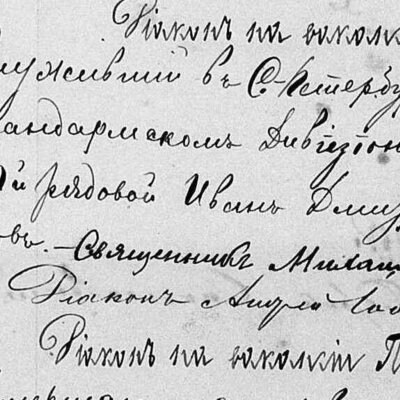 Діаконъ на вакансіи
служившій въ С.-Петербу
жандармскомъ Дивизіон
ой рядовой Иванъ Дми
овъ. - Священникъ Михаи
Діаконъ Андрей
Діаконъ на вакансіи П